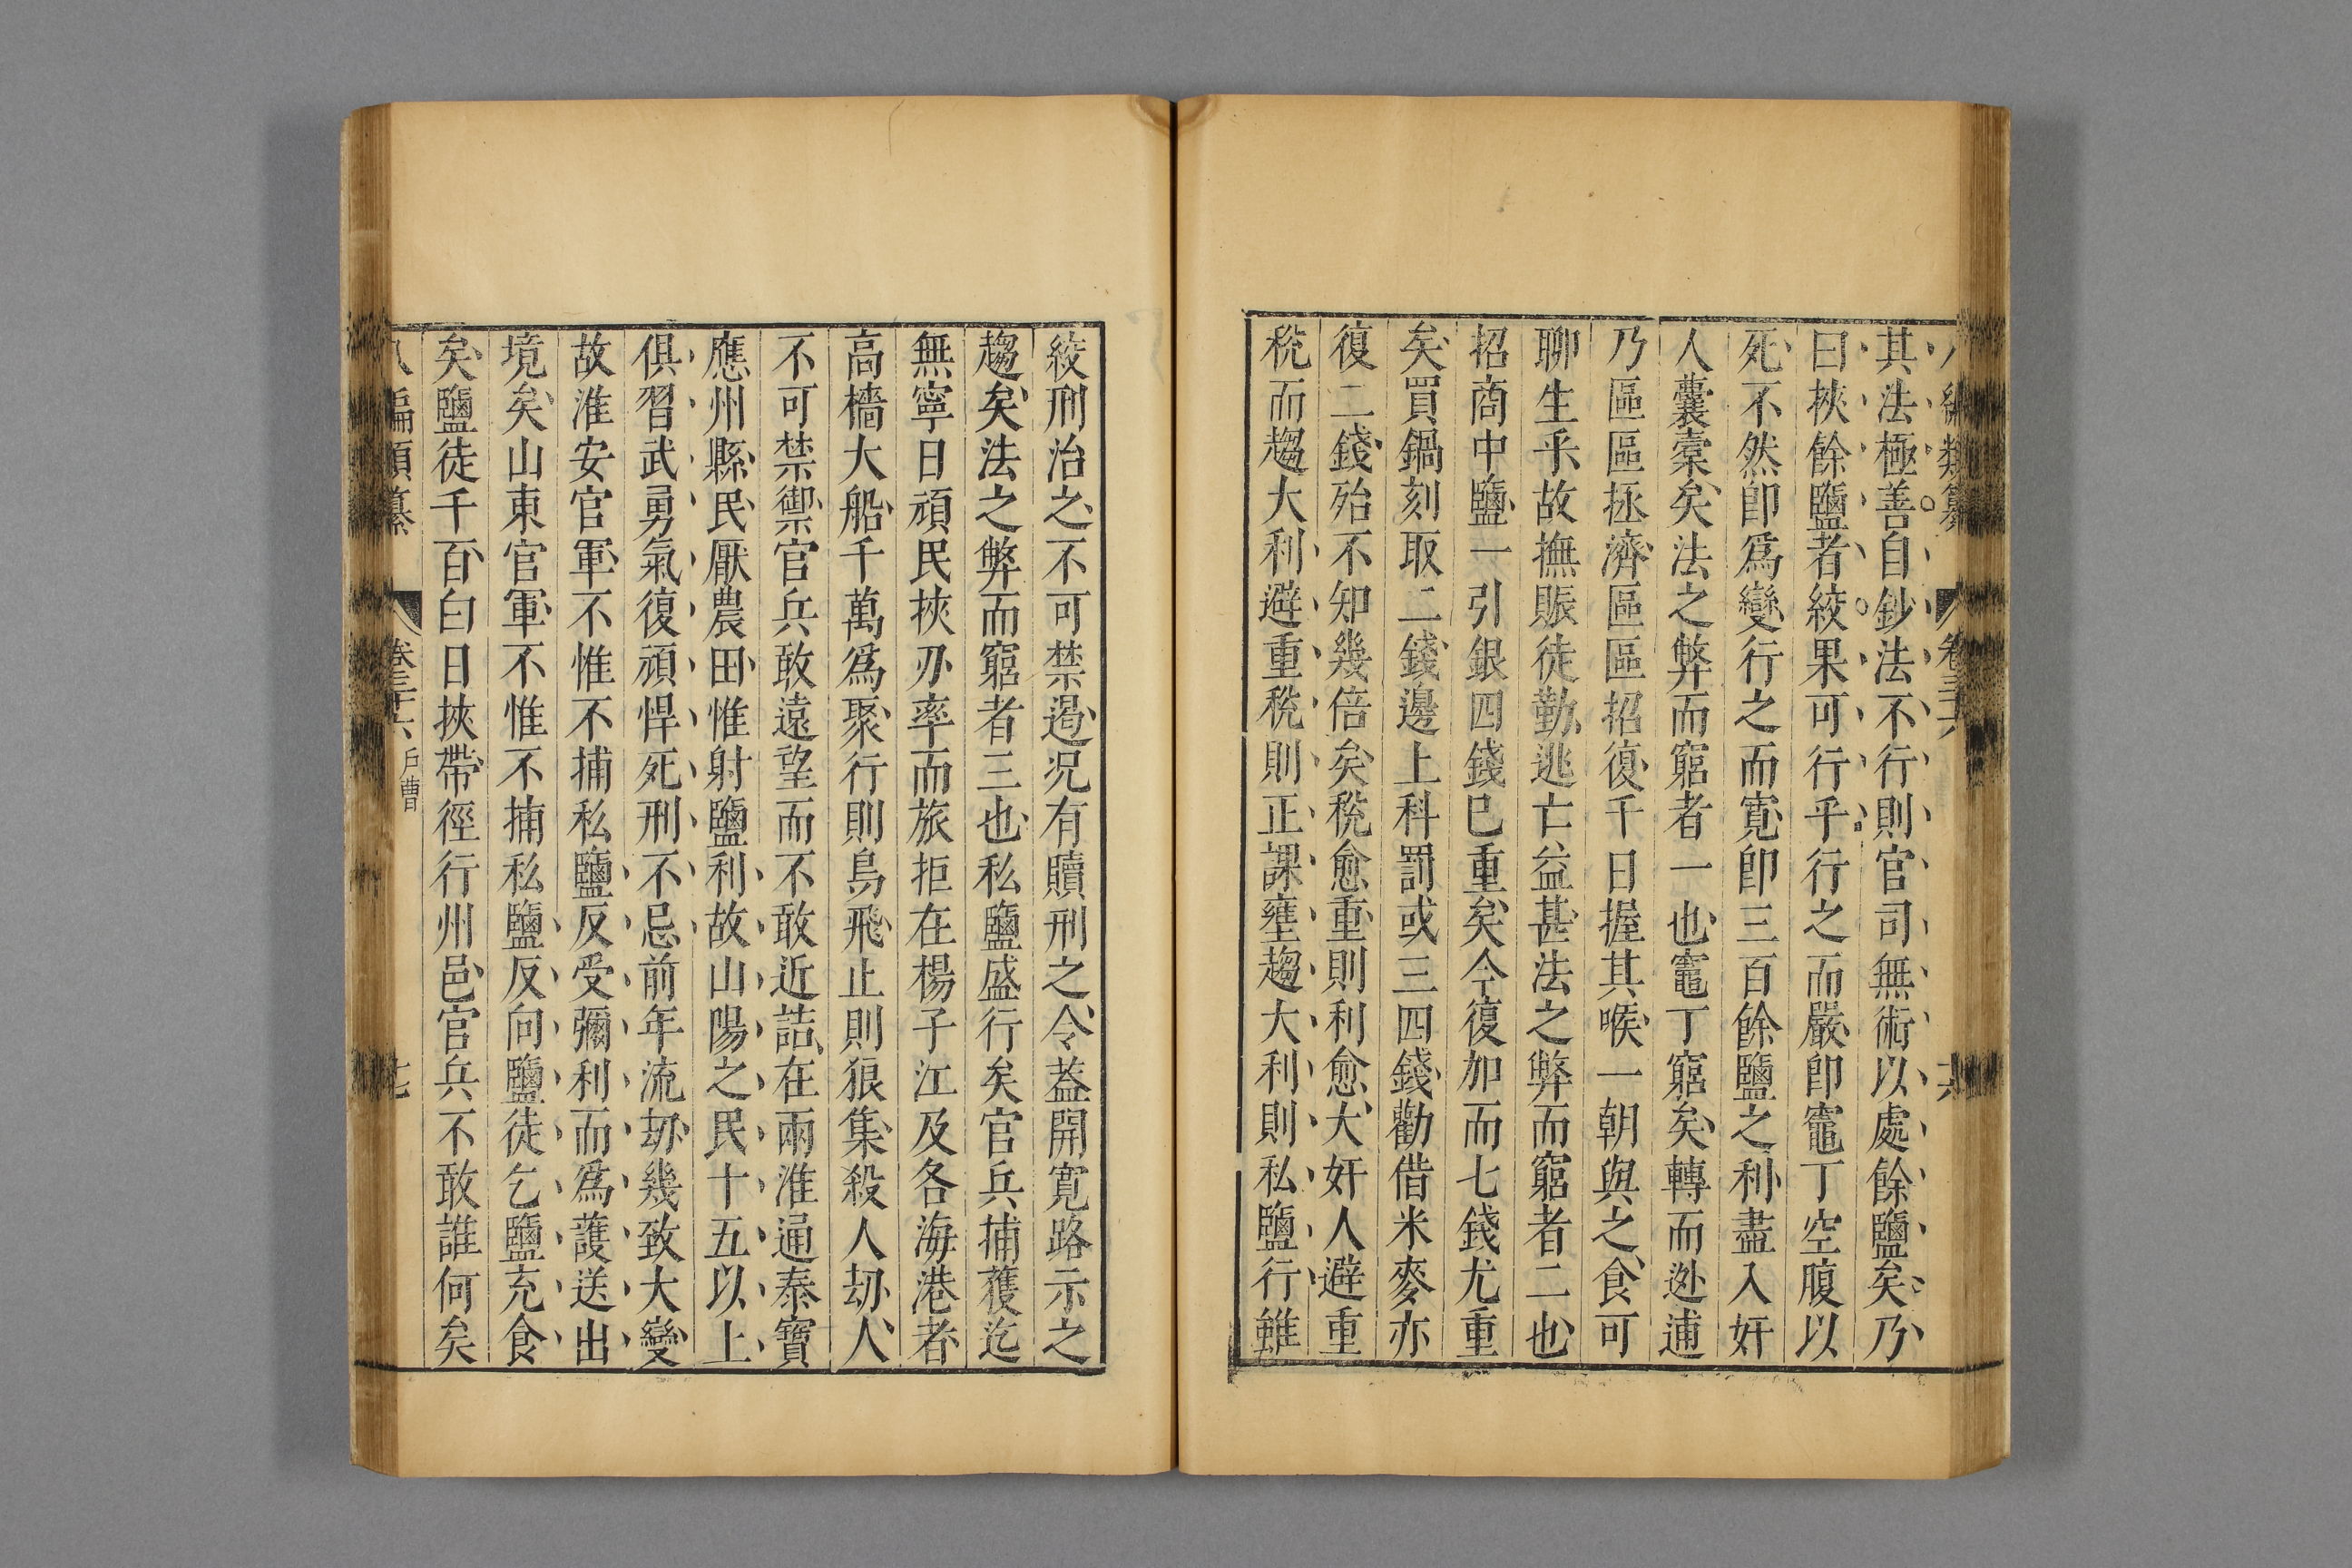 八編類纂 卷三十六 十六
其法極善自鈔法不行則官司無術以處餘鹽矣乃
曰挾餘鹽者絞果可行乎行之而嚴卽竈丁空腹以
死不然卽爲變行之而寛卽三百餘鹽之利盡入奸
人囊槖矣法之弊而窮者一也竈丁窮矣轉而逊逋
乃區區拯濟區區招復千日握其喉一朝與之食可
聊生乎故撫賑徒勤逃亡益甚法之弊而窮者二也
招商中鹽一引銀四錢巳重矣今復加而七錢尤重
矣買鍋刻取二錢邊上科罰或三四錢勸借米麥亦
復二錢殆不知幾倍矣稅愈重則利愈大奸人避重
稅而趨大利避重稅則正課壅趨大利則私鹽行雖
絞刑治之不可禁遏况有贖刑之令葢開寛路示之
趨矣法之弊而窮者三也私鹽盛行矣官兵捕獲迄
無寧日頑民挾刃率而旅拒在楊子江及各海港者
高檣大船千萬爲聚行則鳥飛止則狼集殺人劫人
不可禁禦官兵敢遠望而不敢近詰在兩淮通泰寶
應州縣民厭農田惟射鹽利故山陽之民十五以上
俱習武勇氣復頑悍死刑不忌前年流劫幾致大變
故淮安官軍不惟不捕私鹽反受彌利而爲護送出
境矣山東官軍不惟不捕私鹽反向鹽徒乞鹽充食
矣鹽徒千百白日挾帶徑行州邑官兵不敢誰何矣
八編類纂 卷三十六 戶曹 十七